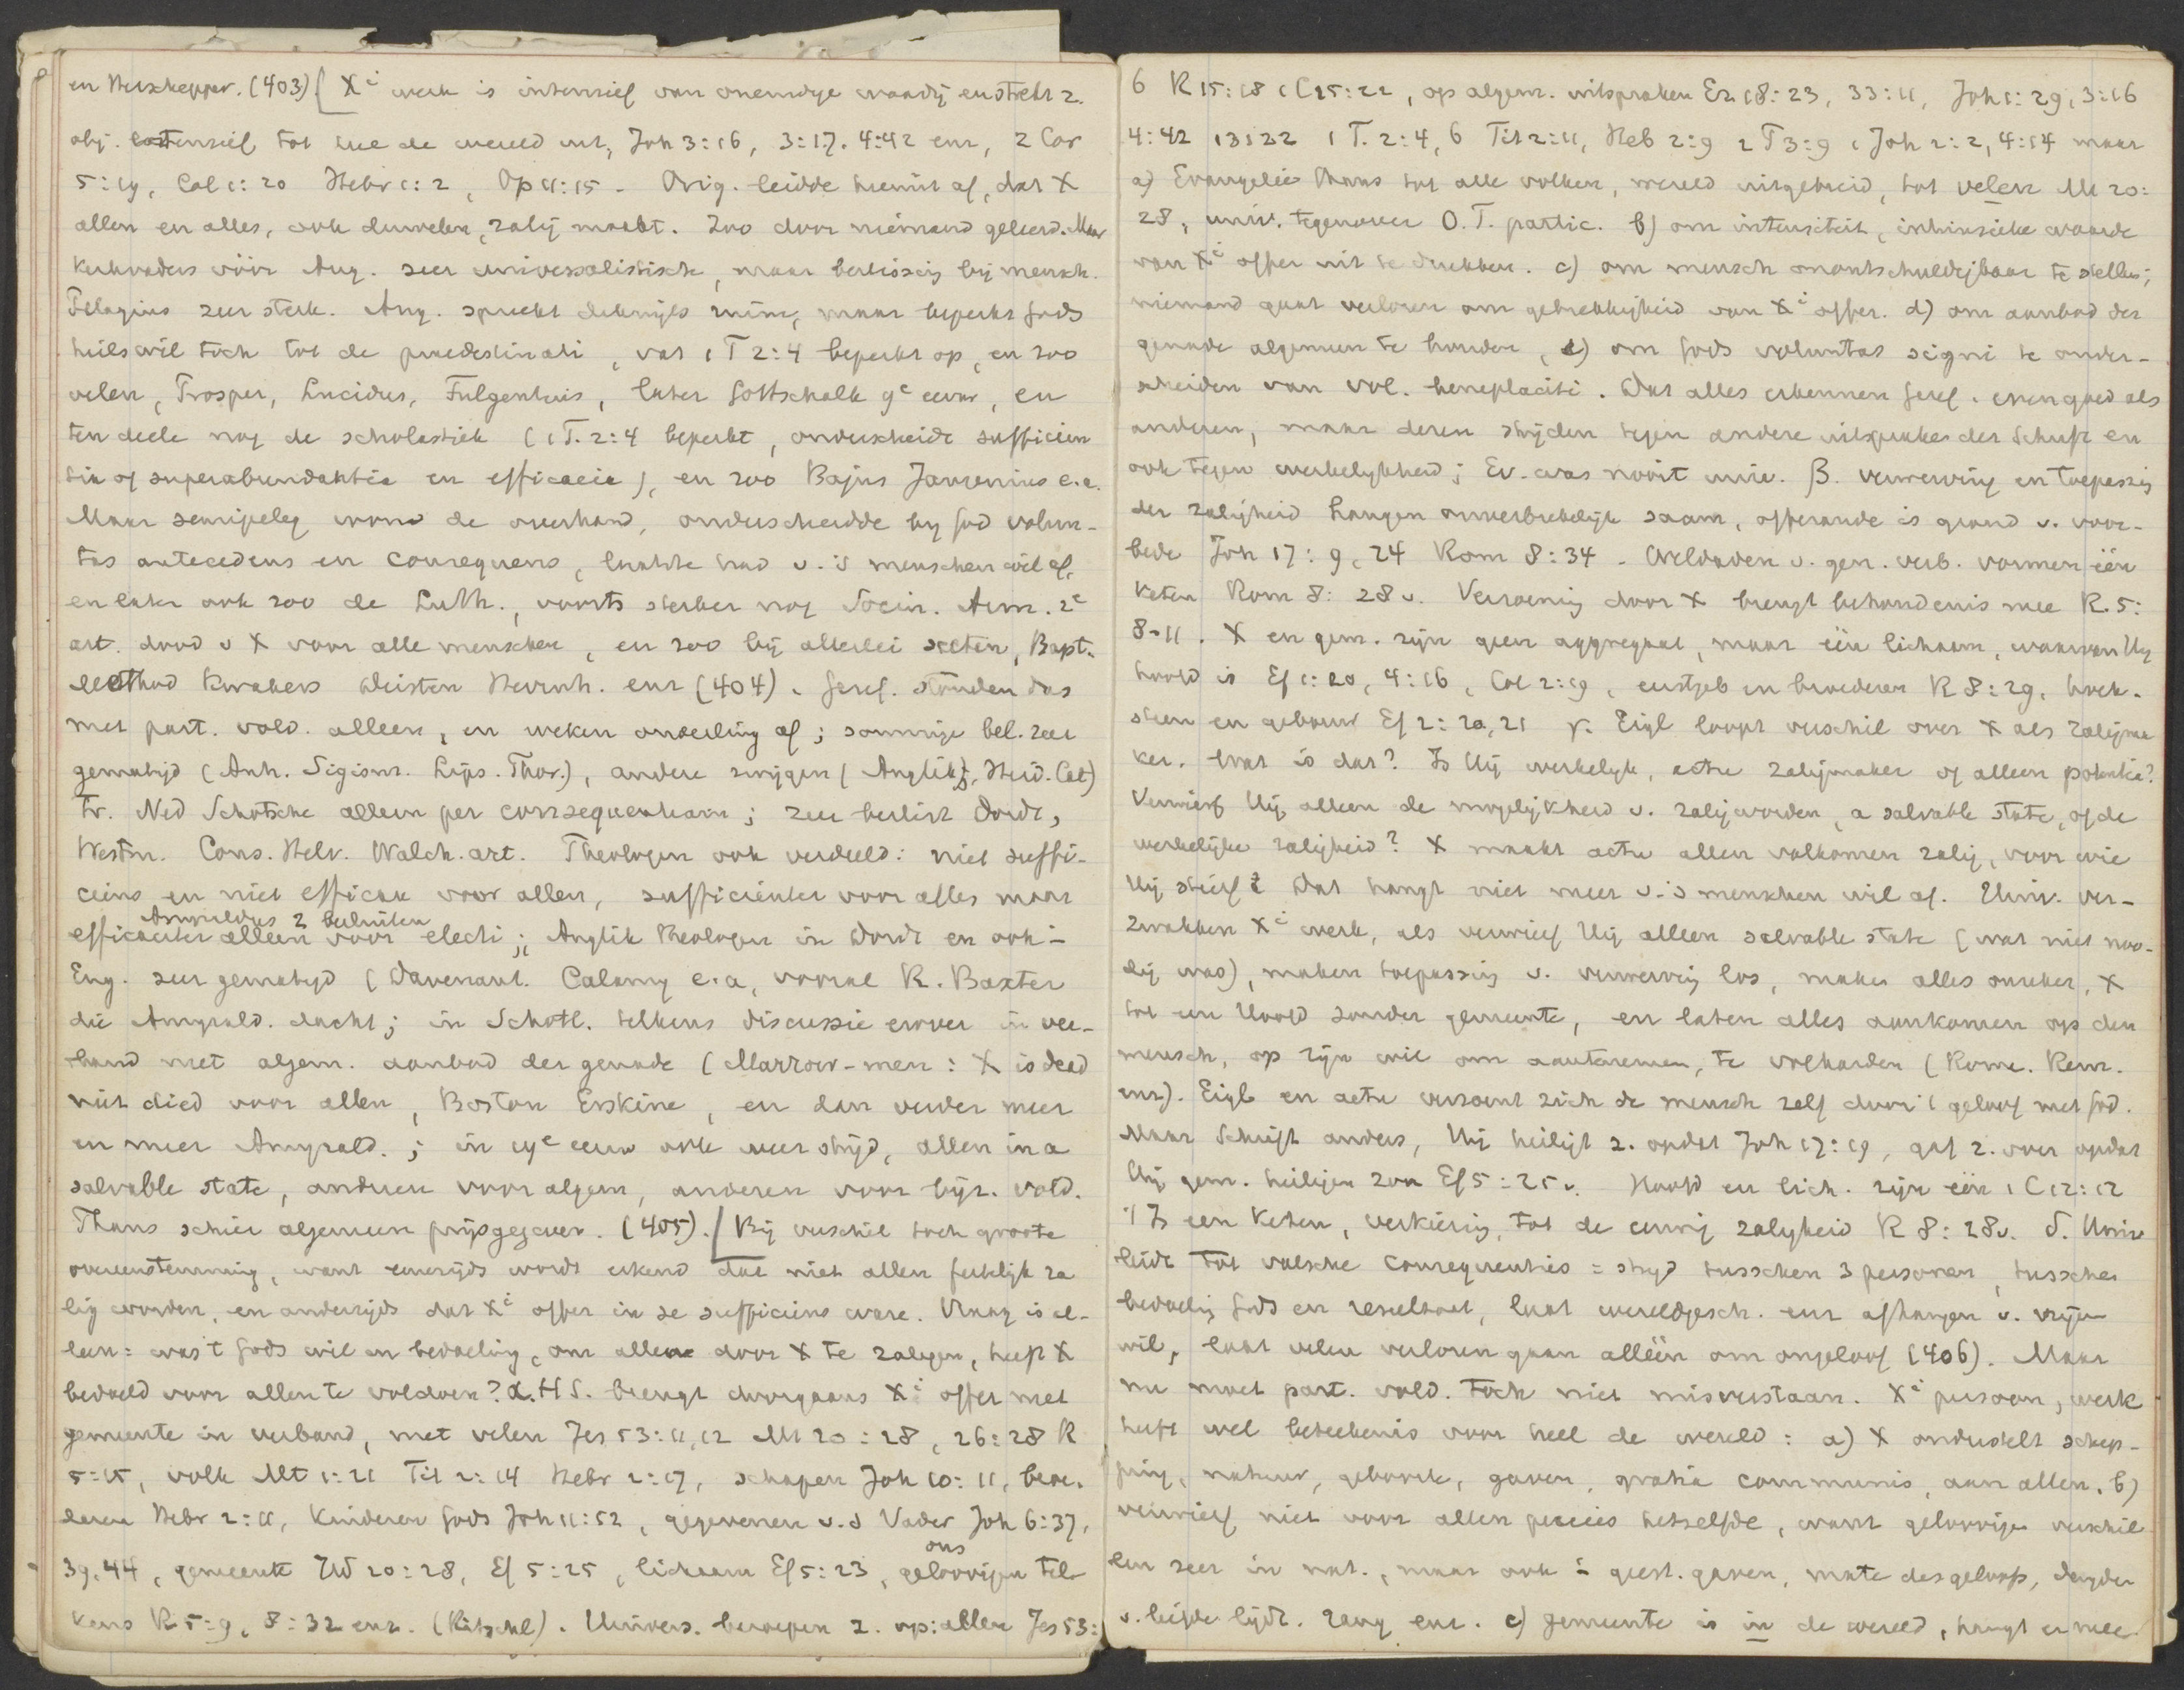 en Herschepper. (403) [ Xi werk is intensief van oneindige waardij en strekt z.
obj. extensief tot heel de wereld uit, Joh 3:16, 3:17. 4:42 enz, 2 Cor
5:19, Col 1:20 Hebr 1:2, Op 11:15 - Orig. leidde hieruit af, dat X
allen en alles, ook duivelen, zalig maakt. Zoo door niemand geleerd. Maar
kerkvaders vóór Aug. zeer universalistisch, maar bij mensch.
Pelagius zeer sterk. Aug. spreekt dikwijls ruim, maar beperkt Gods
heilswil toch tot de praedestinati, vat 1 T 2:4 beperkt op, en zoo
velen, Prosper, Lucidus, Fulgentius, later Gottschalk 9e eeuw, en
ten deele nog de scholastiek (1 T. 2:4 beperkt, onderscheidt sufficien
tia of superabundantia en efficacia), en zoo Bajus Jansenius e.a.
Maar semipeleg. won de overhand, onderscheidde bij God volun-
tas antecedens en consequens, laatste hing v. 's menschen wil af,
en later ook zoo de Luth., voorts sterker nog Socin. Arm. 2e
art. dood v X voor alle menschen, en zoo bij allerlei secten, Bapt.
Method Kwakers Deisten Hernh. enz (404). Geref. stonden dus
met part. vold. alleen, en weken onderling af; sommige bel. zeer
gematigd (Anh. Sigism. Lips. Thor.), andere zwijgen (Anglik, Heid. Cat)
Fr. Ned Schotsche alleen per consequentiam; zeer beslist Dordt,
Westm. Cons. Helv. Walch. art. Theologen ook verdeeld: niet suffi-
ciens en niet efficax voor allen, sufficienter voor alles maar
Amyraldus z besluiten
efficaciter alleen voor electi; Anglik theologen in Dordt en ook i
Eng. zeer gematigd (Davenant. Calamy e.a, vooral R. Baxter
die Amyrald. dacht; in Schotl. telkens discussie erover in ver-
band met algem. aanbod der genade (Marrow-men: X is dead
niet died voor allen, Boston Erskine, en dan verder meer
en meer Amyrald.; in 19e eeuw ook weer strijd, allen in a
salvable state, anderen voor algem, anderen voor bijz. vold.
Thans schier algemeen prijsgegeven. (405). [ Bij verschil toch groote
overeenstemming, want eenerzijds wordt erkend dat niet allen feitelijk za
lig worden, en anderzijds dat Xi offer in se sufficiens ware. Vraag is al-
leen: was 't Gods wil en bedoeling, om allen door X te zaligen, heeft X
bedoeld voor allen te voldoen? α. H S. brengt doorgaans Xi offer met
gemeente in verband, met velen Jes 53:11,12 Mt 20:28, 26:28 R
5:15, volk Mt 1:21 Tit 2:14 Hebr 2:17, schapen Joh 10:11, broe-
deren Hebr 2:11, kinderen Gods Joh 11:52, gegevenen v.d Vader Joh 6:37,
ons
39.44, gemeente Hd 20:28, Ef 5:25, lichaam Ef 5:23, geloovigen tel-
kens R 5:9, 8:32 enz. (Ritschl). Univers. beroepen z. op: allen Jes 53:
6 R 15:18 1 C 15:22, op algem. uitspraken Ez 18:23, 33:11, Joh 1:29, 3:16
4:42 1 T. 2:4, 6 Tit 2:11, Heb 2:9 2 T 3:9 1 Joh 2:2, 4:14 maar
a) Evangelie thans tot alle volken, wereld uitgebreid, tot velen Mt 20:
28, univ. tegenover O.T. partic. b) om intensiteit, intrinsieke waarde
van Xi offer uit te drukken. c) om mensch onontschuldigbaar te stellen;
niemand gaat verloren om gebrekkigheid van Xi offer. d) om aanbod der
genade algemeen te houden, e) om Gods voluntas signi te onder-
scheiden van vol. beneplaciti. Dat alles erkennen Geref. evengoed als
anderen, maar deren strijden tegen andere uitspraken der Schrift en
ook tegen werkelijkheid; Ev. was nooit univ. β. verwerving en toepassing
der zaligheid hangen onverbrekelijk saam, offerande is grond v. voor-
bede Joh 17:9, 24 Rom 8:34 - Weldaden v. gen. verb. vormen één
keten Rom 8:28v. Verzoening door X brengt behoudenis mee R. 5:
8-11. X en gem. zijn geen aggregaat, maar één lichaam, waarvan Hij
hoofd is Ef 1:20, 4:16, Col 2:19, eerstgeb en broederen R 8:29, hoek-
steen en gebouw Ef 2:20,21 γ. Eigl loopt verschil over X als Zaligma
ker. Wat is dat? Is Hij werkelijk, actu zaligmaker of alleen potentia?
Verwierf Hij alleen de mogelijkheid v. zaligworden, a salvable state, of de
werkelijke zaligheid? X maakt actu allen volkomen zalig, voor wie
Hij stierf Dat hangt niet meer v. 's menschen wil af. Univ. ver-
zwakken Xi werk, als verwierf Hij alleen salvable state (wat niet noo-
dig was), maken toepassing v. verwerving los, maken alles onzeker, X
tot een Hoofd zonder gemeente, en laten alles aankomen op den
mensch, op zijn wil om aantenemen, te volharden (Rome. Rem.
enz). Eigl en actu verzoent zich de mensch zelf door 't geloof met God.
Maar Schrift anders, Hij heiligt z. opdat Joh 17:19, gaf z. over opdat
Hij gem. heiligen zou Ef 5:25v. Hoofd en lich. zijn één 1 C 12:12
't Is een keten, verkiezing, tot de eeuwig zaligheid R 8:28v. δ. Univ
leidt tot valsche consequenties = strijd tusschen 3 personen, tusschen
bedoeling Gods en resultaat, laat wereldgesch. enz afhangen v. vrijen
wil, laat velen verloren gaan alléén om ongeloof (406). Maar
nu moet part. vold. toch niet misverstaan. Xi persoon, werk
heeft wel beteekenis voor heel de wereld: a) X onderstelt schep-
ping, natuur, geboorte, gaven, gratia communis, aan allen. b)
verwierf niet voor allen precies hetzelfde, want geloovigen verschil
len zeer in nat., maar ook i geest. gaven, mate des geloofs, deugden
v. liefde lijdz. rang enz. c) gemeente is in de wereld, hangt er mee